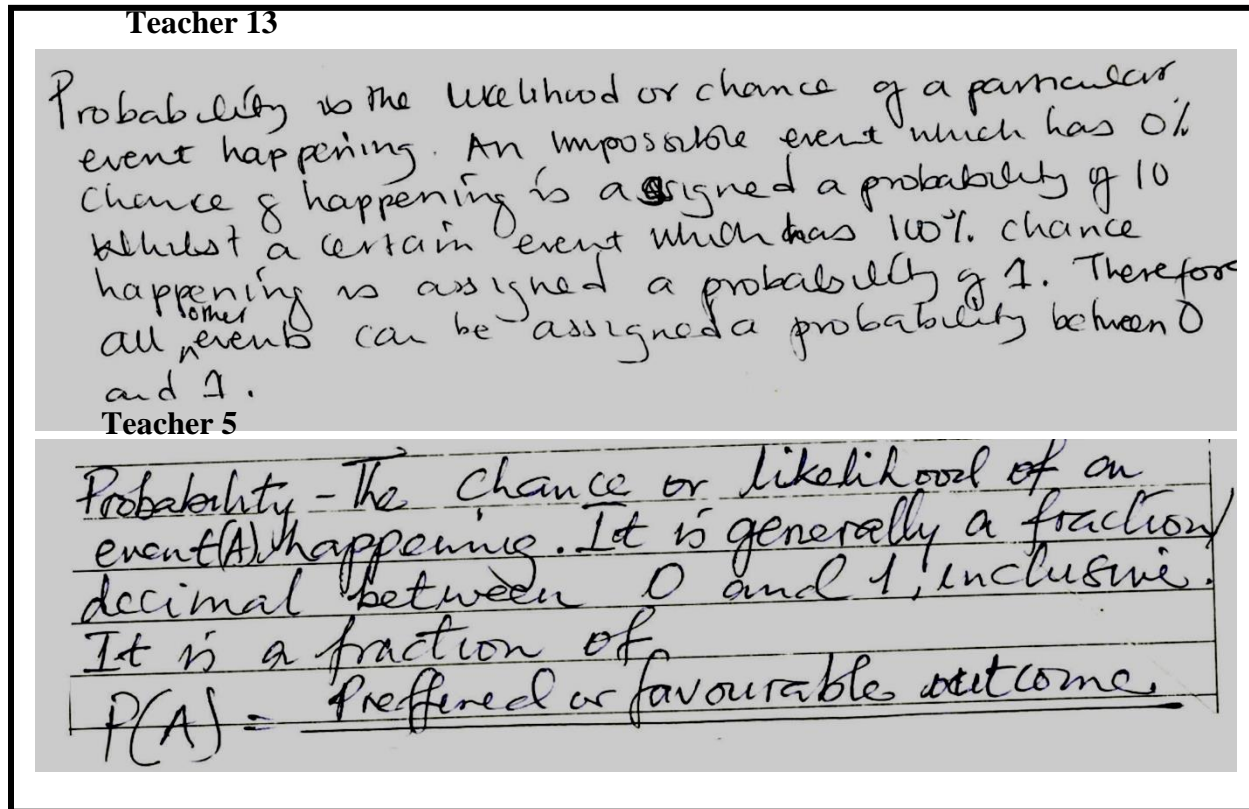 Teacher 13
Probability is the likelihood or chance of a particular
event happening. An impossible event which has 0%
chance of happening is assigned a probability of 10
whilst a certain event which has 100% chance
happening is assigned a probability of 1. Therefore
all other events can be assigned a probability between 0
and 1.
Teacher 5
Probability - The chance or likelihood of an
event(A) happening. It is generally a fraction/
decimal between 0 and 1, inclusive.
It is a fraction of
P(A) = Preffered or favourable outcome